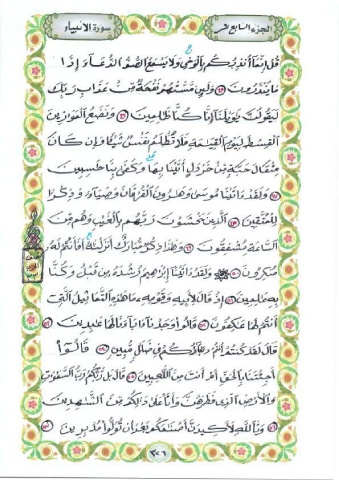 الجزء السابع عشر
سورة الأنبياء
قُلْ إِنَّمَا أُنذِرُكُم بِالْوَحْيِ وَلَا يَسْمَعُ الصُّمُّ الدُّعَاءَ إِذَا
مَا يُنذَرُونَ ٤٥ وَلَئِن مَّسَّتْهُمْ نَفْحَةٌ مِّنْ عَذَابِ رَبِّكَ
لَيَقُولُنَّ يَٰوَيْلَنَا إِنَّا كُنَّا ظَٰلِمِينَ ٤٦ وَنَضَعُ الْمَوَٰزِينَ
الْقِسْطَ لِيَوْمِ الْقِيَٰمَةِ فَلَا تُظْلَمُ نَفْسٌ شَيْئًا وَإِن كَانَ
مِثْقَالَ حَبَّةٍ مِّنْ خَرْدَلٍ أَتَيْنَا بِهَا وَكَفَىٰ بِنَا حَٰسِبِينَ
٤٧ وَلَقَدْ ءَاتَيْنَا مُوسَىٰ وَهَٰرُونَ الْفُرْقَانَ وَضِيَاءً وَذِكْرًا
لِّلْمُتَّقِينَ ٤٨ الَّذِينَ يَخْشَوْنَ رَبَّهُم بِالْغَيْبِ وَهُم مِّنَ
السَّاعَةِ مُشْفِقُونَ ٤٩ وَهَٰذَا ذِكْرٌ مُّبَارَكٌ أَنزَلْنَٰهُ أَفَأَنتُمْ لَهُ
مُنكِرُونَ ٥٠ وَلَقَدْ ءَاتَيْنَا إِبْرَٰهِيمَ رُشْدَهُ مِن قَبْلُ وَكُنَّا
بِهِ عَٰلِمِينَ ٥١ إِذْ قَالَ لِأَبِيهِ وَقَوْمِهِ مَا هَٰذِهِ التَّمَاثِيلُ الَّتِي
أَنتُمْ لَهَا عَٰكِفُونَ ٥٢ قَالُوا وَجَدْنَا ءَابَاءَنَا لَهَا عَٰبِدِينَ ٥٣
قَالَ لَقَدْ كُنتُمْ أَنتُمْ وَءَابَاؤُكُمْ فِي ضَلَٰلٍ مُّبِينٍ ٥٤ قَالُوا
أَجِئْتَنَا بِالْحَقِّ أَمْ أَنتَ مِنَ اللَّٰعِبِينَ ٥٥ قَالَ بَل رَّبُّكُمْ رَبُّ السَّمَٰوَٰتِ
وَالْأَرْضِ الَّذِي فَطَرَهُنَّ وَأَنَا عَلَىٰ ذَٰلِكُم مِّنَ الشَّٰهِدِينَ
٥٦ وَتَاللَّهِ لَأَكِيدَنَّ أَصْنَٰمَكُم بَعْدَ أَن تُوَلُّوا مُدْبِرِينَ ٥٧
٣٢٦